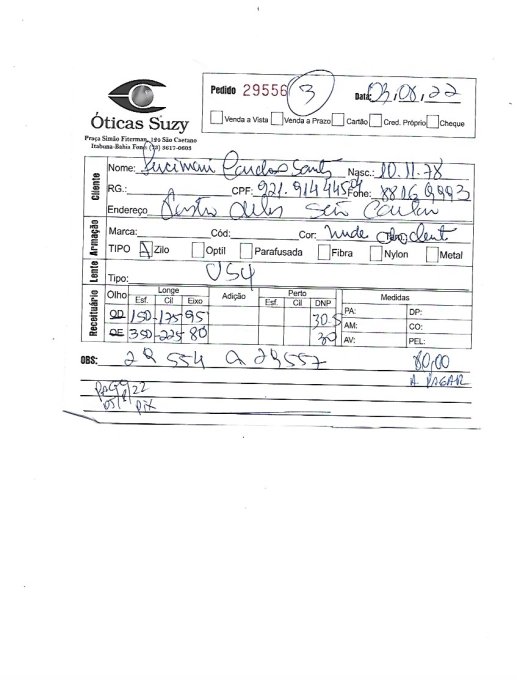 Óticas Suzy
Praça Simão Fiterman, 124 São Caetano
Itabuna-Bahia Fone (73) 3617-0605
Pedido 29556 3 Data: 03,08,22
Venda a Vista Venda a Prazo Cartão Cred. Próprio Cheque
Cliente
Nome: Santos Nasc.: 10.11.78
RG.: CPF: Fone: 8816 9993
Endereço São
Armação
Marca: Cód: Cor: nude
TIPO Zilo Optil Parafusada Fibra Nylon Metal
Lente
Tipo:
Receituário
Olho Longe Adição Perto Medidas
Esf. Cil Eixo Esf. Cil DNP
OD 150 -175 95 30.5 PA: DP:
OE 350 -225 80 30 AM: CO:
AV: PEL:
OBS: 29554 a 29557 80,00
A PAGAR
PAGO
05/8/22
PIX